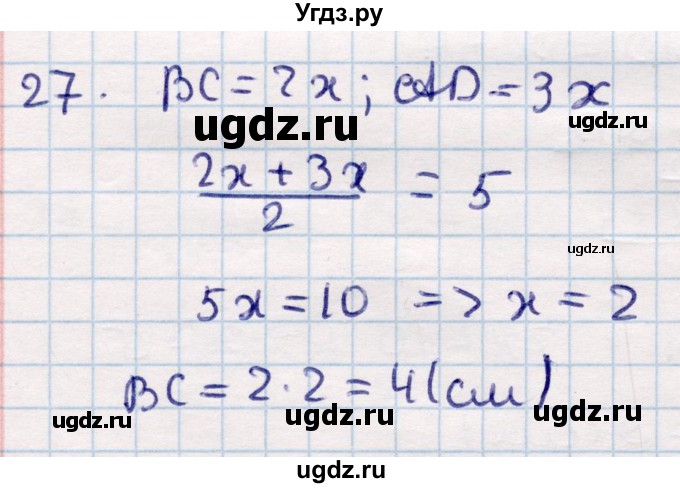 Угдз.ру
27. BC = 2x; AD = 3x
ugdz.ru
ugdz.ru
(2x + 3x)/2 = 5
ugdz.ru
5x = 10 => x = 2
BC = 2·2 = 4 (см)
ugdz.ru
ugdz.ru
ugdz.ru
ugdz.ru